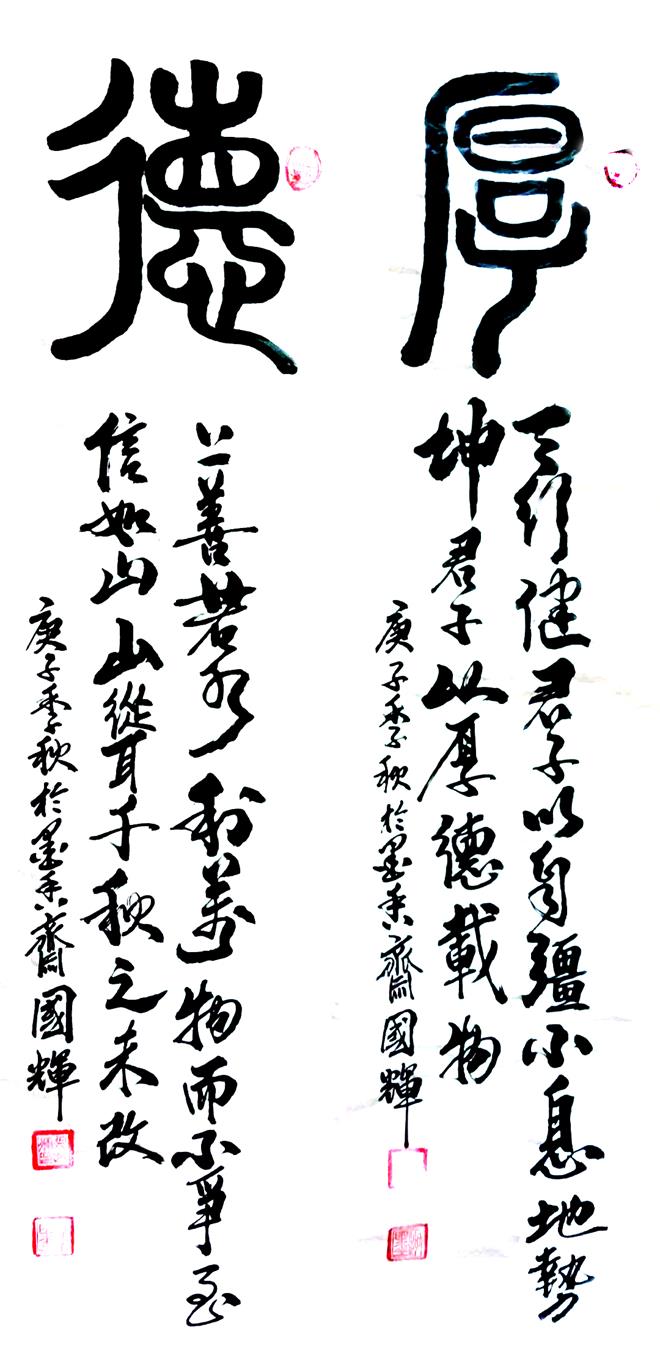 厚
天行健君子以自彊不息地勢
坤君子以厚德載物
庚子季秋於墨香齋國輝
德
上善若水利萬物而不爭至
信如山山從耳千秋之未改
庚子季秋於墨香齋國輝